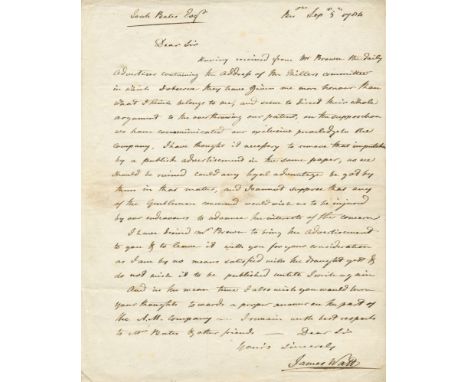 Joah Bates Esqr Bir. Sep 5th 1784
Dear Sir
Having received from Mr Brown the daily
Advertiser containing the Address of the Millers committee
in which I observe they have given me more honour than
what I think belongs to me, and seem to direct their whole
argument to the overthrowing our patent, on the supposition
we have communicated our exclusive priviledge to the
company. I have thought it necessary to remove that
by a publick advertisement in the same paper, as we
should be ruined could any legal advantage be got by
them in that matter, and I cannot suppose that any
of the Gentlemen concerned would wish us to be injured
by our endeavors to advance the interests of the concern
I have desired Mr Brown to bring the Advertisement
to you & to leave it with you for your consideration
as I am by no means satisfied with the draught of it &
do not wish it to be published untill I write again
And in the mean time I also wish you would turn
your thoughts towards a proper answer on the part of
the A.M. Company — I remain with best respects
to Mrs Bates & other friends — Dear Sir
Yours Sincerely
James Watt